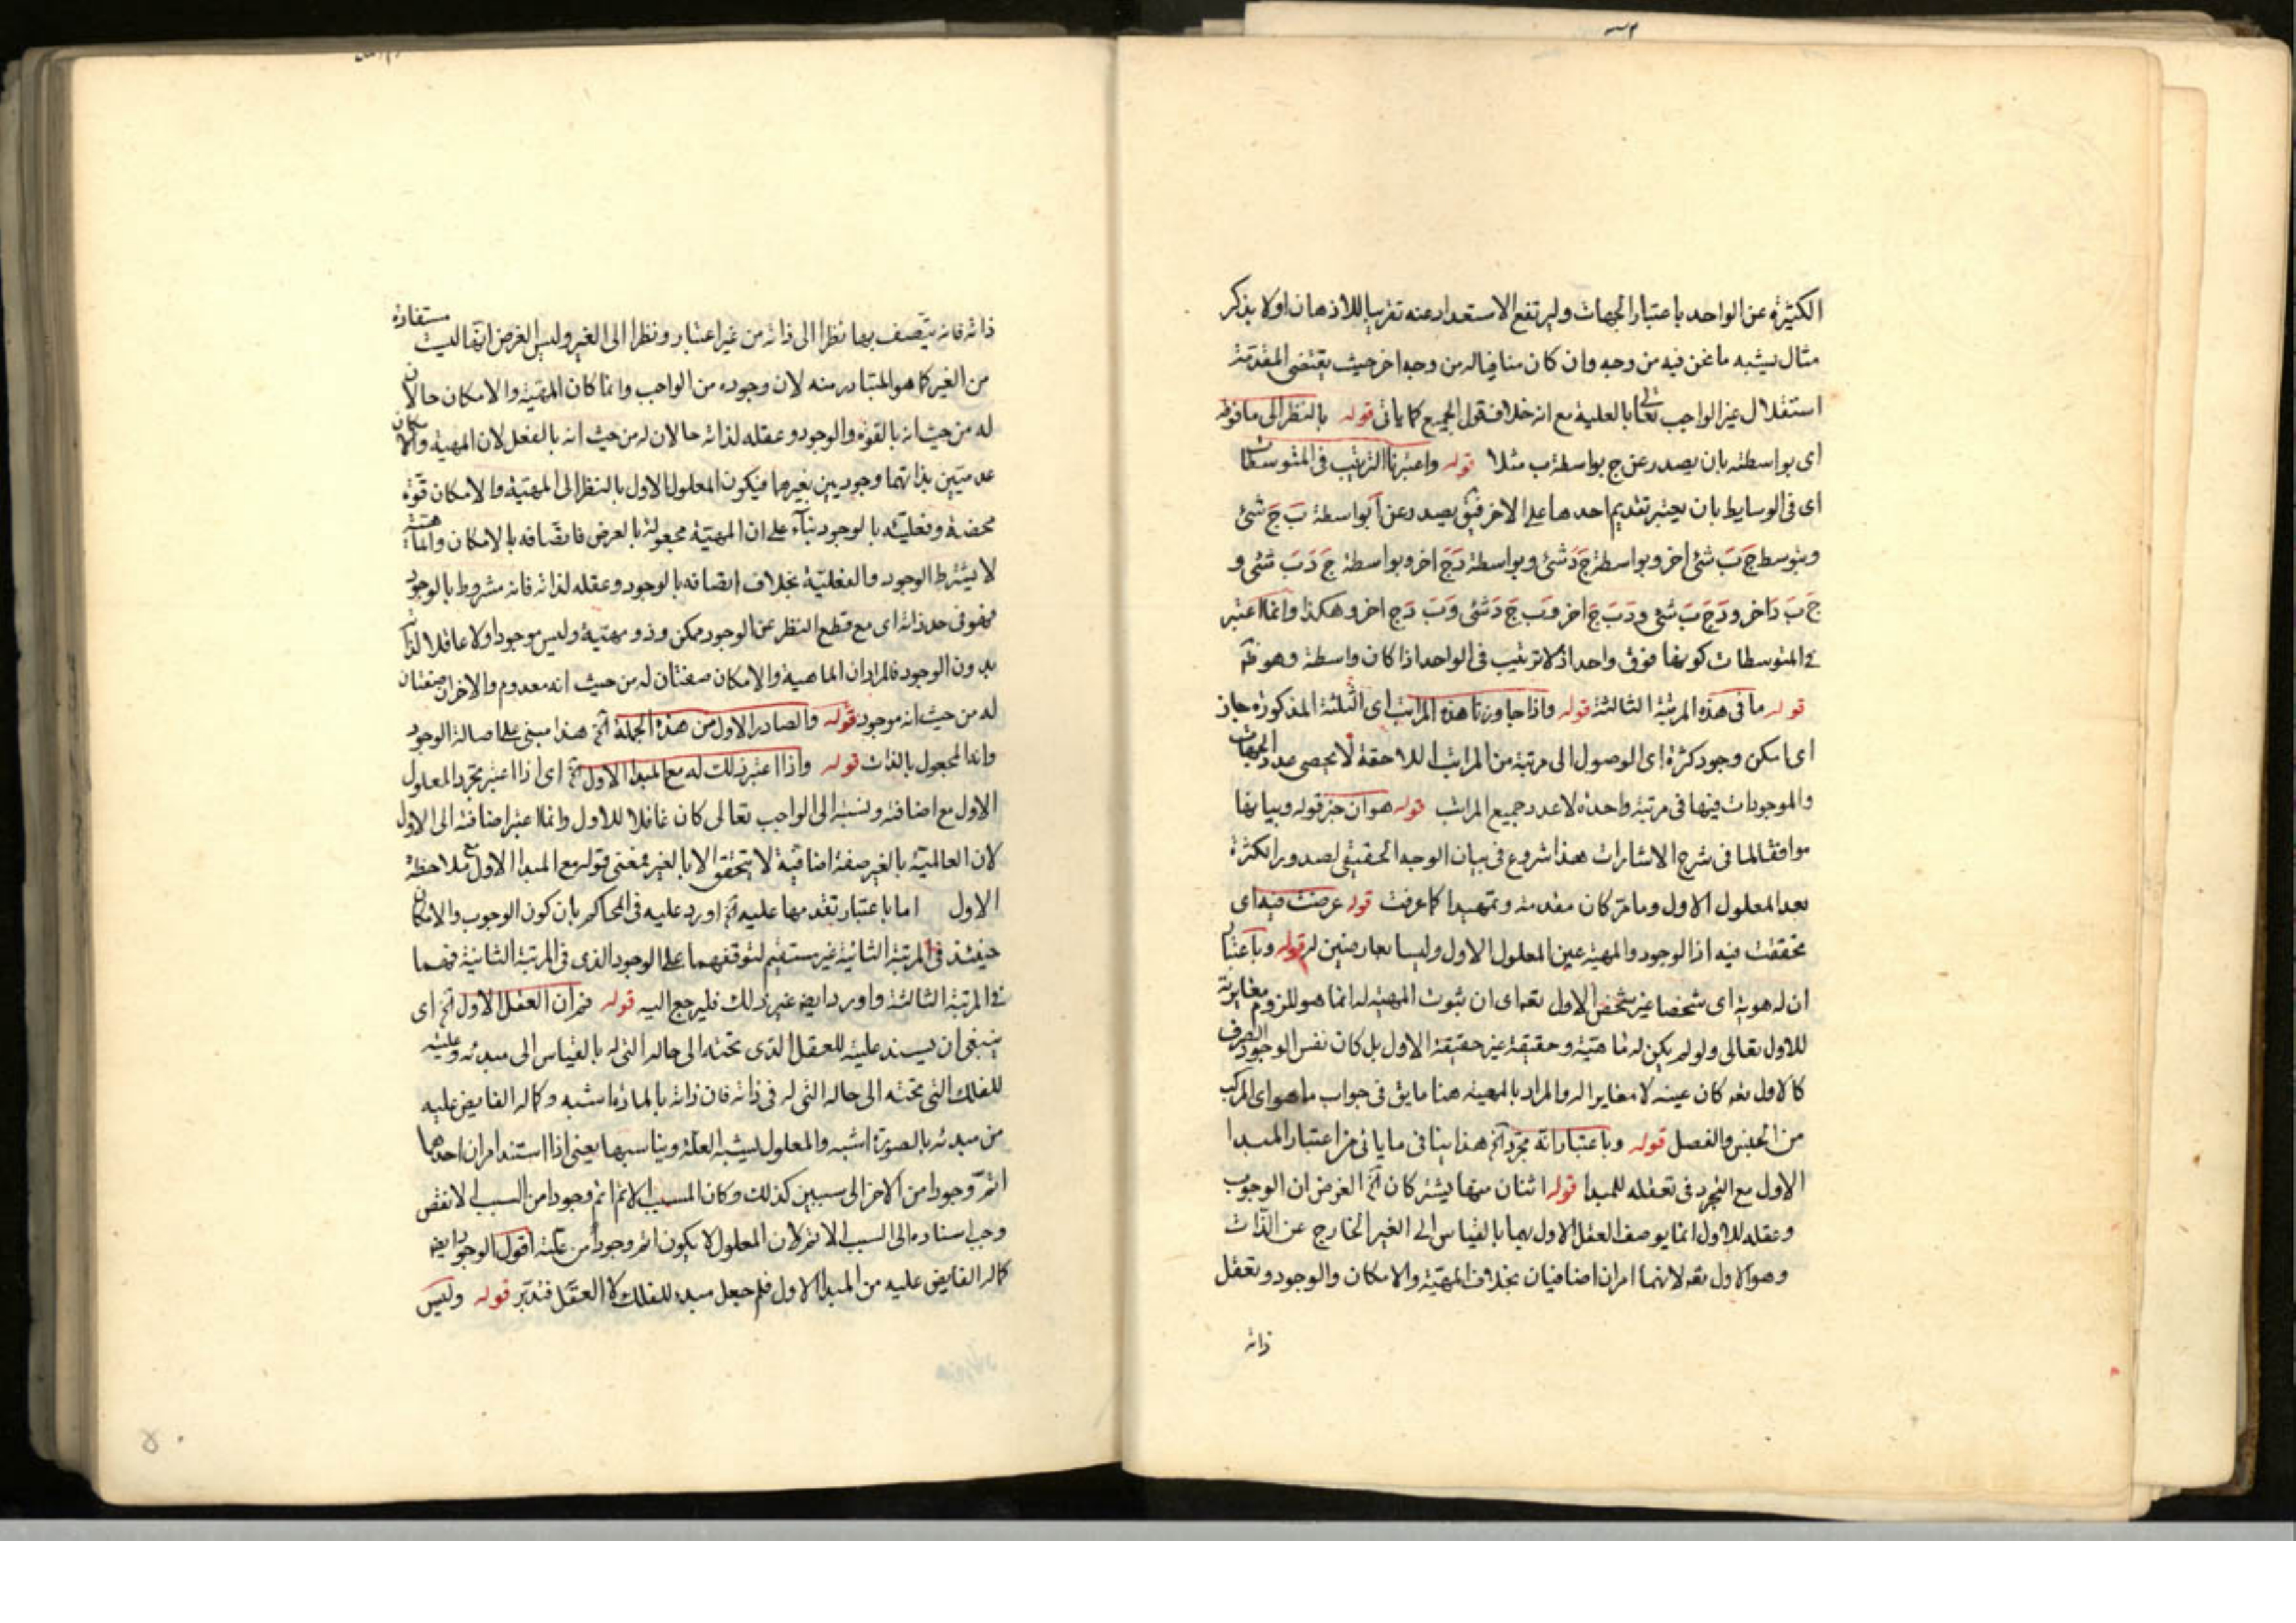 الكثيرة عن الواحد باعتبار الجهات وليرتفع الاستعداد عنه تقريبا للاذهان اولا بذكر
مثال يشبه ما نحن فيه من وجه وان كان منافيا له من وجه اخر حيث يقتضى المقدمة
استقلال غير الواجب تعالى بالعلية مع انه خلاف قول الجميع كما ياتى قوله بالنظر الى ما فوقه
اى بواسطته بان يصدر عن ج بواسطة ب مثلا قوله واعتبرنا الترتيب فى المتوسطات
اى فى الوسايط بان يعتبر تقديم احدها على الاخر فيق يصدر عن آ بواسطة بَ جَ شئ
وبتوسط جَ بَ شئ اخر وبواسطة جَ دَ شئ وبواسطة دَ جَ اخر وبواسطة جَ دَ بَ شئ و
جَ بَ دَ اخر و دَ جَ بَ شئ و دَ بَ جَ اخر و بَ جَ دَ شئ و بَ دَ ج اخر وهكذا وانما اعتبر
فى المتوسطات كونها فوق واحد اذ لا ترتيب فى الواحد اذا كان واسطة وهو ظ
قوله ما فى هذه المرتبة الثالثة قوله واذا جاوزنا هذه المراتب اى الثلثة المذكورة جاز
اى امكن وجود كثرة اى الوصول الى مرتبة من المراتب اللاحقة لا يحصى عدد الجهات
والموجودات فيها فى مرتبة واحدة لا عدد جميع المراتب قوله هو ان خبر قوله وبيانها
موافقا لما فى شرح الاشارات هذا شروع فى بيان الوجه الحقيقى لصدور الكثرة
بعد المعلول الاول وما مر كان مقدمة وتمهيدا كما عرفت قوله عرضت فيه اى
تحققت فيه اذ الوجود والمهية عين المعلول الاول وليسا بعارضين له قوله وباعتبار
ان له هوية اى شخصا غير شخص الاول تعه اى ان ثبوت المهية له انما هو للزوم مغايرته
للاول تعالى ولو لم يكن له ماهية وحقيقة غير حقيقة الاول بل كان نفس الوجود الصرف
كالاول تعه كان عينه لا مغايرا له والمراد بالمهية هنا ما يق فى جواب ما هو اى المركب
من الجنس والفصل قوله وباعتبار انه مجرد آه هذا ينافى ما ياتى من اعتبار المبدا
الاول مع التجرد فى تعقله للمبدا قوله اثنان منها يشتركان آه الغرض ان الوجوب
وعقله للاول انما يوصف العقل الاول بهما بالقياس الى الغير الخارج عن الذات
وهو الاول تعه لانهما امران اضافيان بخلاف المهية والامكان والوجود وتعقل
ذاته
ذاته فانه يتصف بها نظرا الى ذاته من غير اعتبار ونظر الى الغير وليس الغرض انها ليست مستفادة
من الغير كما هو المتبادر منه لان وجوده من الواجب وانما كان المهية والامكان حالان
له من حيث انه بالقوة والوجود وعقله لذاته حالان له من حيث انه بالفعل لان المهية والامكان
عدميتين بذاتهما وجوديين بغيرهما فيكون المعلول الاول بالنظر الى المهية والامكان قوة
محضة وفعليته بالوجود بناء على ان المهية مجعولة بالعرض فاتصافه بالامكان والماهية
لا يشترط الوجود والفعلية بخلاف اتصافه بالوجود وعقله لذاته فانه مشروط بالوجود
فهو فى حد ذاته اى مع قطع النظر عن الوجود ممكن وذو مهية وليس موجودا ولا عاقلا لذاته
بدون الوجود فالمراد ان الماهية والامكان صفتان له من حيث انه معدوم والاخران صفتان
له من حيث انه موجود قوله والصادر الاول من هذة الجملة آه هذا مبنى على اصالة الوجود
وانه المجعول بالذات قوله واذا اعتبر ذلك له مع المبدا الاول آه اى اذا اعتبر تجرد المعلول
الاول مع اضافته ونسبته الى الواجب تعالى كان عاقلا للاول وانما اعتبر اضافته الى الاول
لان العالمية بالغير صفة اضافية لا يتحقق الا بالغير فمعنى قوله مع المبدا الاول مع ملاحظة
الاول اما باعتبار تقدمها عليه آه اورد عليه فى المحاكم بان كون الوجوب والامكان
حينئذ فى المرتبة الثانية غير مستقيم لتوقفهما على الوجود الذى فى المرتبة الثانية فهما
فى المرتبة الثالثة واورد ايض غير ذلك فليرجع اليه قوله ثم ان العقل الاول آه اى
ينبغى ان يسند علية للعقل الذى تحته الى حاله التى له بالقياس الى مبدئه وعليته
للفلك التى تحته الى حاله التى له فى ذاته فان ذاته بالمادة اشبه وكماله الفايض عليه
من مبدئه بالصورة اشبه والمعلول يشبه العلة ويناسبها يعنى اذا استند امران احدهما
اتم وجودا من الاخر الى سببين كذلك وكان المسبب الاتم اتم وجودا من السبب الانقص
وجب اسناده الى السبب الاتم لان المعلول لا يكون اتم وجودا من علته اقول الوجود ايض
كماله الفايض عليه من المبدا الاول فلم جعل مبدء للفلك لا العقل فتدبر قوله وليس